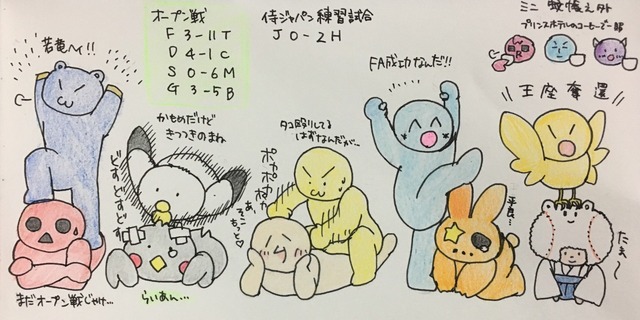 オープン戦
F 3-11 T
D 4-1 C
S 0-6 M
G 3-5 B
侍ジャパン練習試合
J 0-2 H
ミニ 蚊帳之外
プリンスホテルのコーヒー部
若竜ヘイ!!
かもめだけど
きつつきのまね
どすどすどす
タコ殴りしてる
はずなんだが…
ポカポカポカ
あ、そこ
もっと♡
FA成功なんだ!!
王座奪還
平良…
たぁ〜
まだオープン戦じゃけ…
らいあん…